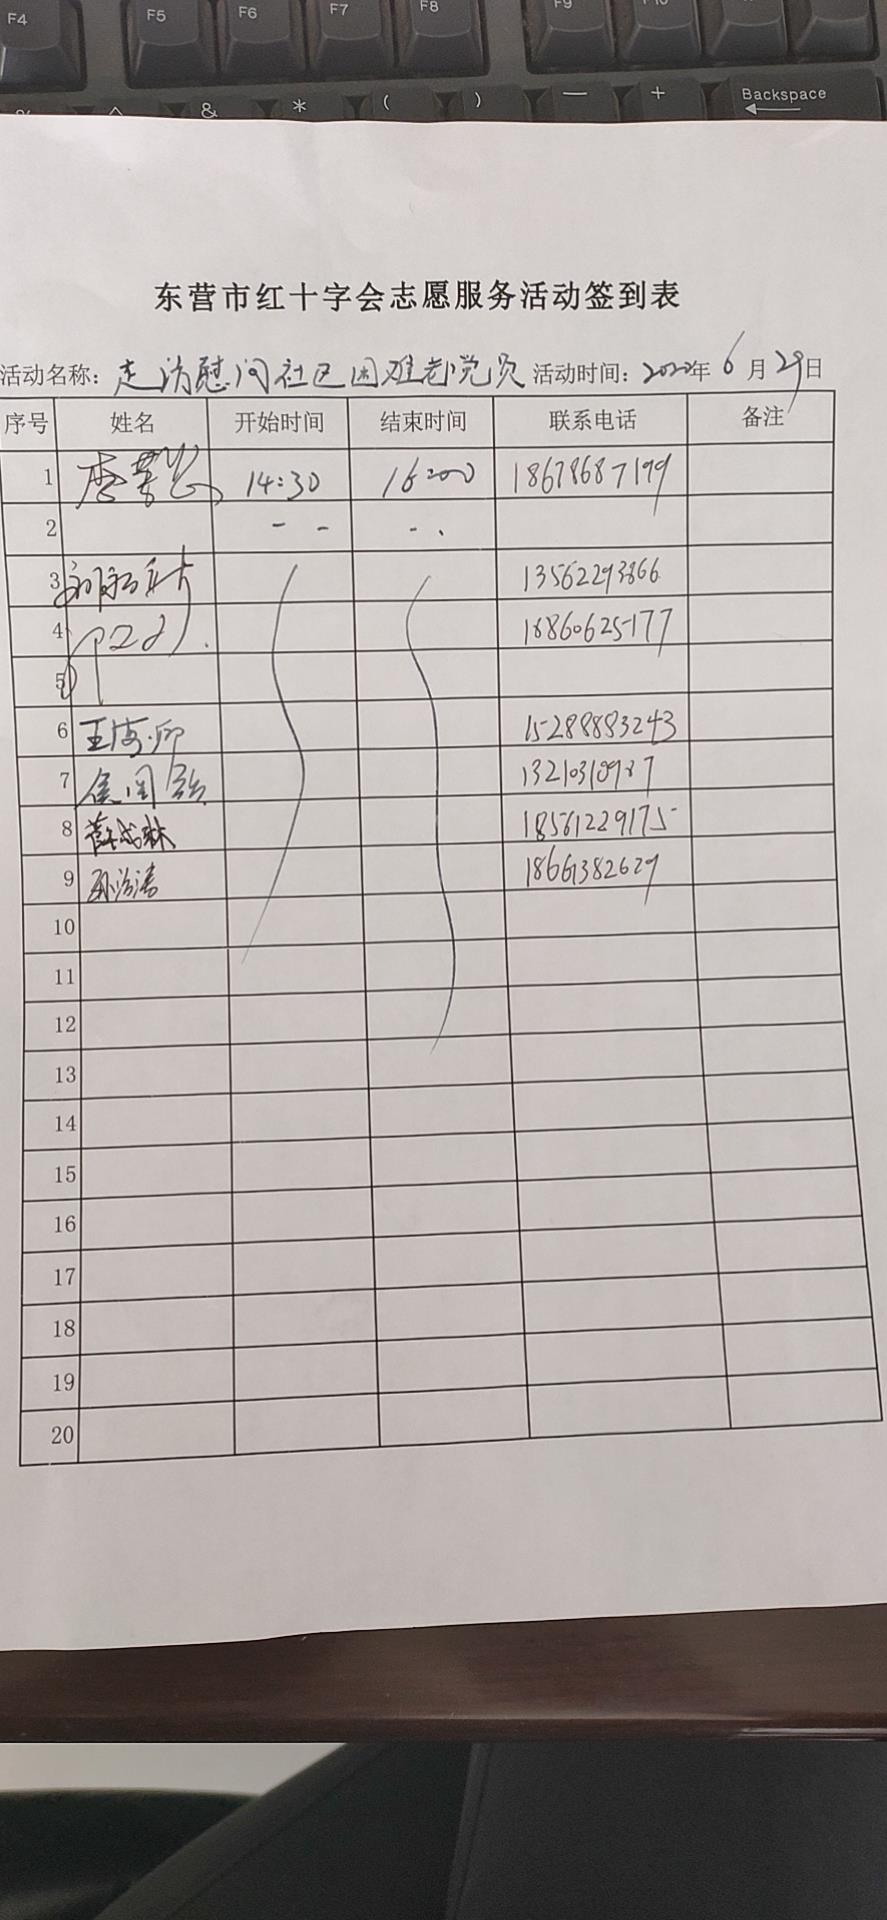 F4 F5 F6 F7 F8 F9 F10
% ^ & * ( ) — + Backspace
东营市红十字会志愿服务活动签到表
活动名称：走访慰问社区困难老党员 活动时间：2020年6月29日
序号 姓名 开始时间 结束时间 联系电话 备注
1 14:30 16:00 18678687199
2
3 13562293866
4 18860625177
5
6 王海 15288883243
7 侯国
8 薛成林 18561229175
9 孙治涛 18661382629
10
11
12
13
14
15
16
17
18
19
20